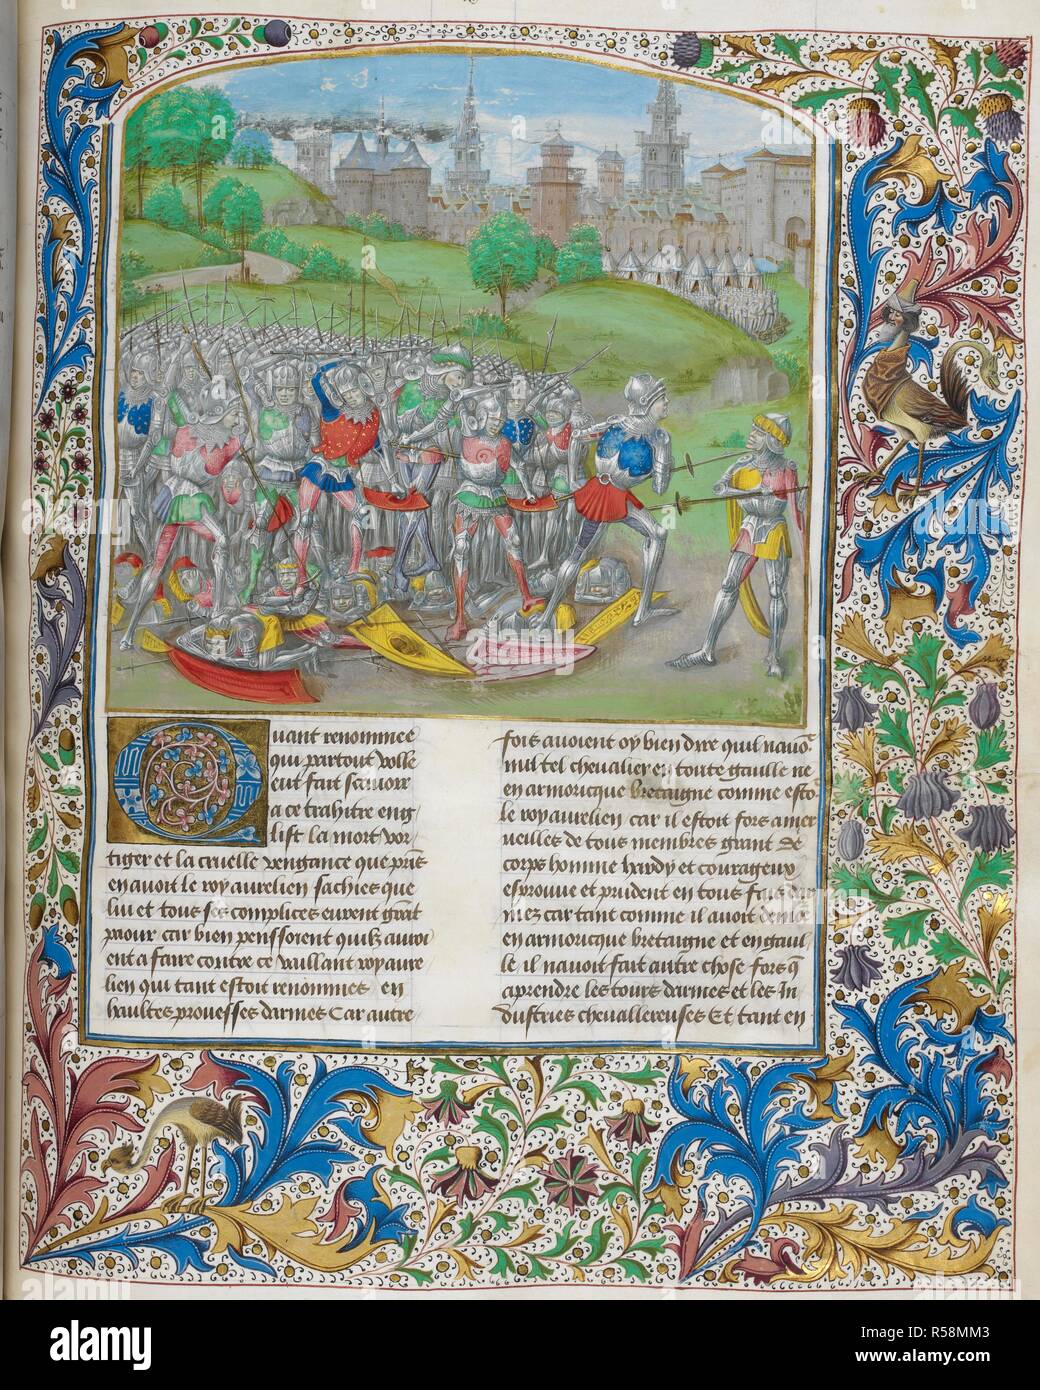 Quant renommee
qui partout volle
eut fait scavoir
a ce trahitre eng
list la mort vor
tiger et la cruelle vengance que pris
en avoit le roy aurelien sachies que
luy et tous ses complices eurent grant
paour car bien penssoient quilz auroi
ent a faire contre ce vaillant roy aure
lien qui tant estoit renommes en
haultes prouesses darmes Car autre
fois avoient oy bien dire quil navoit
nul tel chevalier en toute gaulle ne
en armoricque bretaigne comme estoit
le roy aurelien car il estoit fors a mer
veilles de tous membres grant de
corps homme hardy et courageux
esprouve et prudent en tous fais dar
mez car tant comme il avoit demore
en armoricque bretaigne et en gaul
le il navoit fait autre chose fors q̃
aprendre les tours darmes et les In
dustries chevallereuses Et tant en
alamy stock photo
alamy
Image ID: R58MM3
www.alamy.com